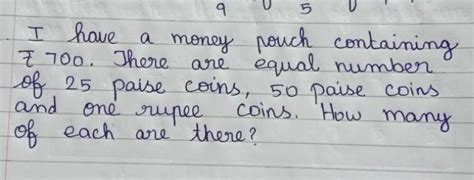 9 5
I have a money pouch containing
₹ 700. There are equal number
of 25 paise coins, 50 paise coins
and one rupee coins. How many
of each are there?